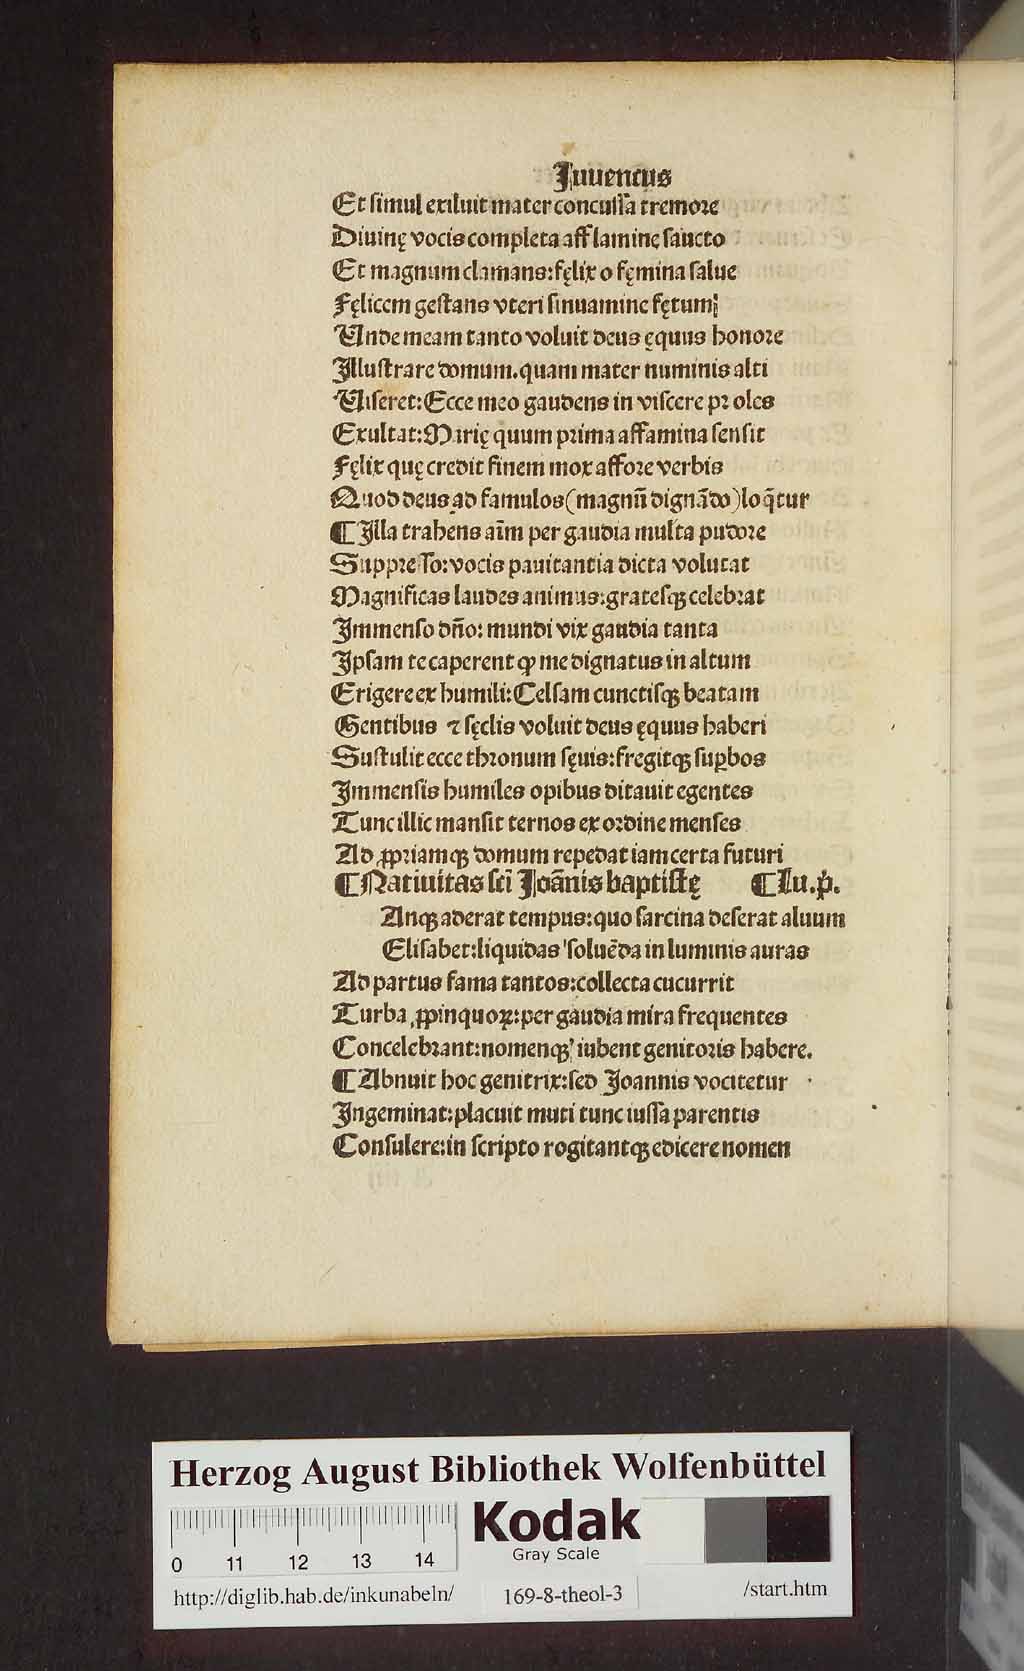 Iuuencus
Et simul exiluit mater concussa tremore
Diuinę vocis completa afflamine sancto
Et magnum clamans:fęlix o fęmina salue
Fęlicem gestans vteri sinuamine fętum
Unde meam tanto voluit deus ęquus honore
Illustrare domum.quam mater numinis alti
Uiseret:Ecce meo gaudens in viscere proles
Exultat:Marię quum prima affamina sensit
Fęlix quę credit finem mox affore verbis
Quod deus ad famulos(magnū dignādo)loq̄tur
¶ Illa trahens aīm per gaudia multa pudore
Suppresso:vocis pauitantia dicta volutat
Magnificas laudes animus:gratesqꝫ celebrat
Immenso dn̄o: mundi vix gaudia tanta
Ipsam te caperent ꝙ me dignatus in altum
Erigere ex humili:Celsam cunctisqꝫ beatam
Gentibus ⁊ sęclis voluit deus ęquus haberi
Sustulit ecce thronum sęuis:fregitqꝫ suꝑbos
Immensis humiles opibus ditauit egentes
Tunc illic mansit ternos ex ordine menses
Ad ꝓpriamqꝫ domum repedat iam certa futuri
¶ Natiuitas scī Joānis baptistę ¶ Lu.p̄.
Anqꝫ aderat tempus:quo sarcina deserat aluum
Elisabet:liquidas soluēda in luminis auras
Ad partus fama tantos:collecta cucurrit
Turba ꝓpinquoꝝ:per gaudia mira frequentes
Concelebrant:nomenqꝫ iubent genitoris habere.
¶ Abnuit hoc genitrix:sed Joannis vocitetur
Ingeminat:placuit muti tunc iussa parentis
Consulere:in scripto rogitantqꝫ edicere nomen
Herzog August Bibliothek Wolfenbüttel
Kodak
Gray Scale
0 11 12 13 14
http://diglib.hab.de/inkunabeln/ 169-8-theol-3 /start.htm